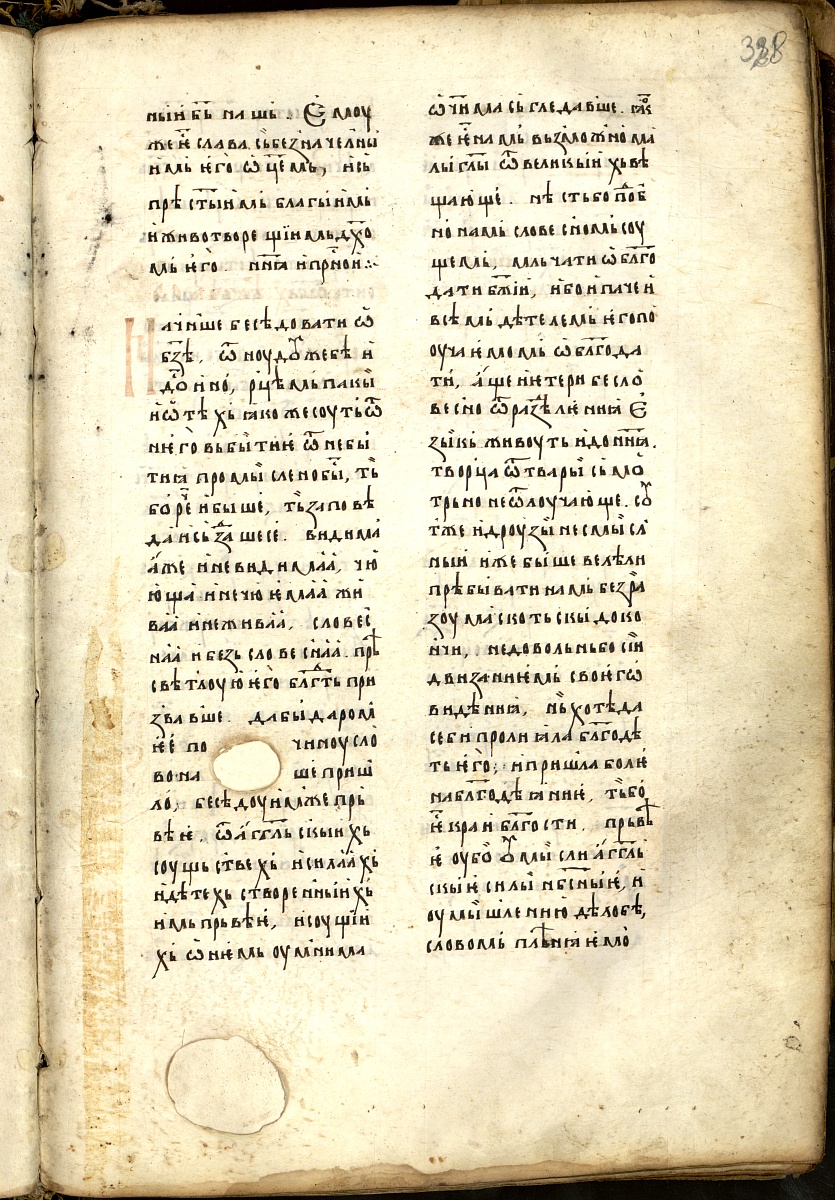 328
ныи бь҃ нашь. Ѥмоу
же ѥ҃ слава. сьбезначелны
имь ѥго ѡц҃емь, и сь
прѣст҃ыимь благыимь
и животворещїимь дх҃о
мь ѥго. нн҃ꙗ и прн҃ои ⁘
Начнше бесѣдовати ѡ
бз҃ѣ. ѿноудоуже бѣ и
до и но, рцѣмь пакы
и ѡтѣхь ꙗкоже соуть ѿ
нѥго вьбытиѥ ѿ небы
тиꙗ промысленобы, ть
бо ре҃ и быше, ть заповѣ
да и сьзⷣашесе. видима
аже и невидимаа, чю
юща и нечюѥмаа жи
ваа и неживаа, словес
наа и безьсловеснаа. прѣ
свѣтлоую ѥго блгⷣть при
звавше. да бы даромь
ѥѥ по чиноу сло
во на ше приш
ло, бесѣдоуимже прь
вѣѥ. ѿ агг҃льскыихь
соущьствехь и силахь
и дѣтехь створенныихь
имь прьвѣѥ, и соущїи
хь ѡ нѥмь оумнима
ѡчима сьгледавше. ꙗк
же ѥ҃ намь вьзможно ма
лыи гл҃ы ѿ великыихь вѣ
щающе. нѣсть бо под҃об
но намь словесномь соу
щемь, мльчати ѡ блг҃о
дати бж҃ии, ибо и паче и
всѣмь дѣтелемь ѥго по
оучаѥмомь ѡ блг҃ода
ти, аще и ѥтери бесло
весно ѿ разⷣѣлѥниꙗ ѥ
зыкь живоуть и до нн҃ꙗ.
творца ѿ твары смо
трьно не ѿлоучающе. соу
тже и дроузы несмысл
ныи иже быше велѣли
прѣбывати намь безра
зоумаскотьскы до ко
нчи, недовольньбо сїи
движаниѥмь своѥгѡ
видѣниꙗ, нь хотѣда
се би пролиꙗла благодѣ
ть ѥго; и пришла болѥ
на блг҃одѣꙗниѥ, ть бо
ѥ҃ краи блг҃ости. прьвѣ
ѥ оубо оумысли агг҃ль
скыѥ силы и нб҃сныѥ, и
оумышлению дѣло бѣ,
словомь плънꙗѥмо